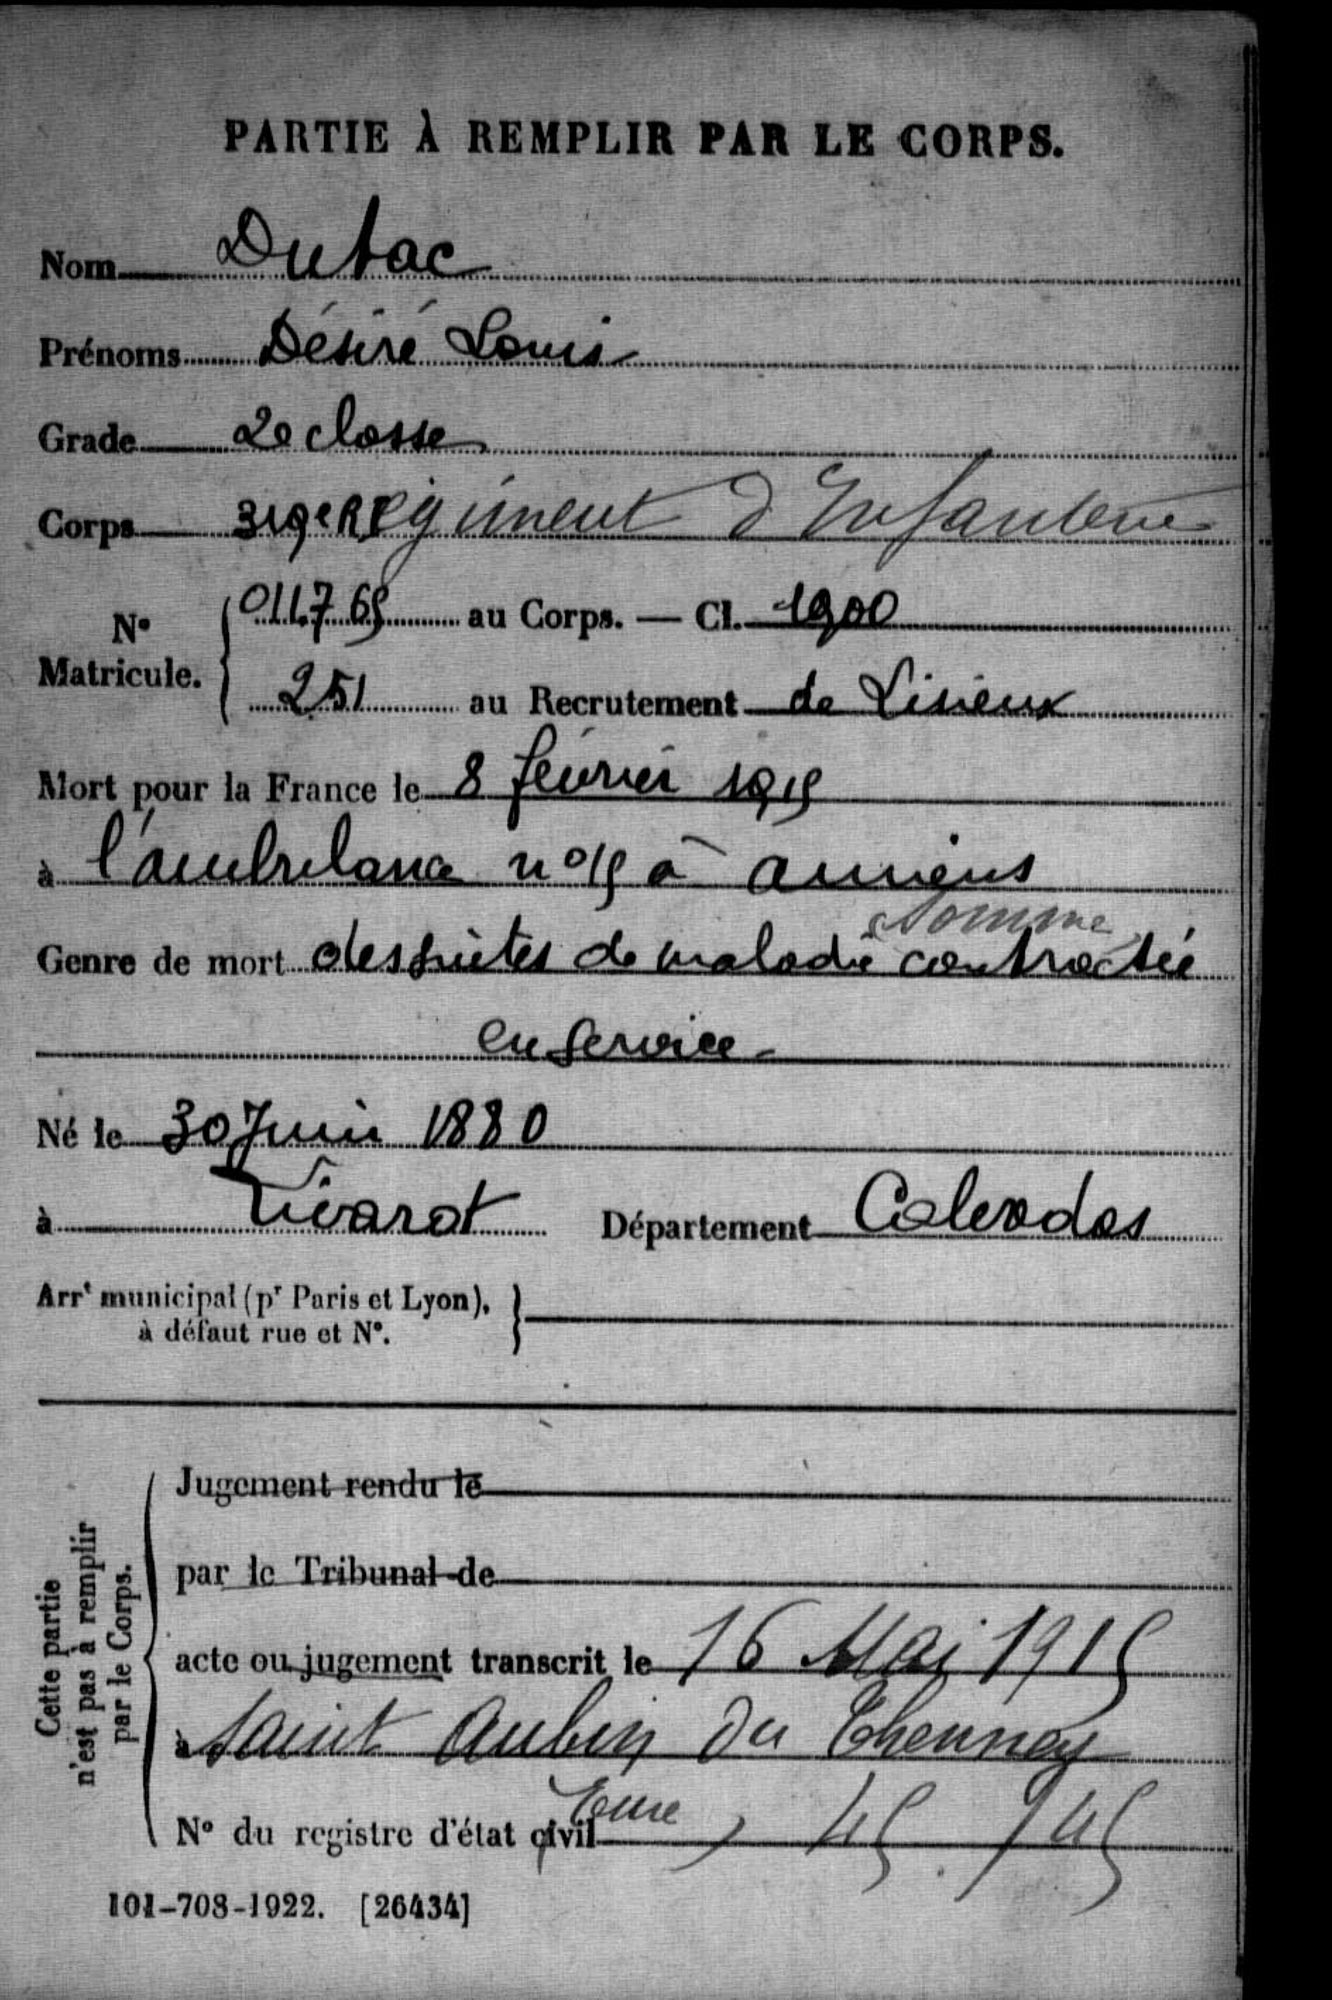 PARTIE À REMPLIR PAR LE CORPS.
Nom Dutac
Prénoms Désiré Louis
Grade 2e classe
Corps 319e Régiment d'Infanterie
No Matricule. 011765 au Corps. — Cl. 1900
251 au Recrutement de Lisieux
Mort pour la France le 8 février 1915
à l'ambulance no 15 à amiens
Somme
Genre de mort des suites de maladie contractée
en service
Né le 30 Juin 1880
à Livarot Département Calvados
Arrt municipal (pr Paris et Lyon),
à défaut rue et No.
Cette partie
n'est pas à remplir
par le Corps.
Jugement rendu le
par le Tribunal de
acte ou jugement transcrit le 16 Mai 1915
à Saint Aubin du Thenney
Eure
No du registre d'état civil
101-708-1922. [26434]